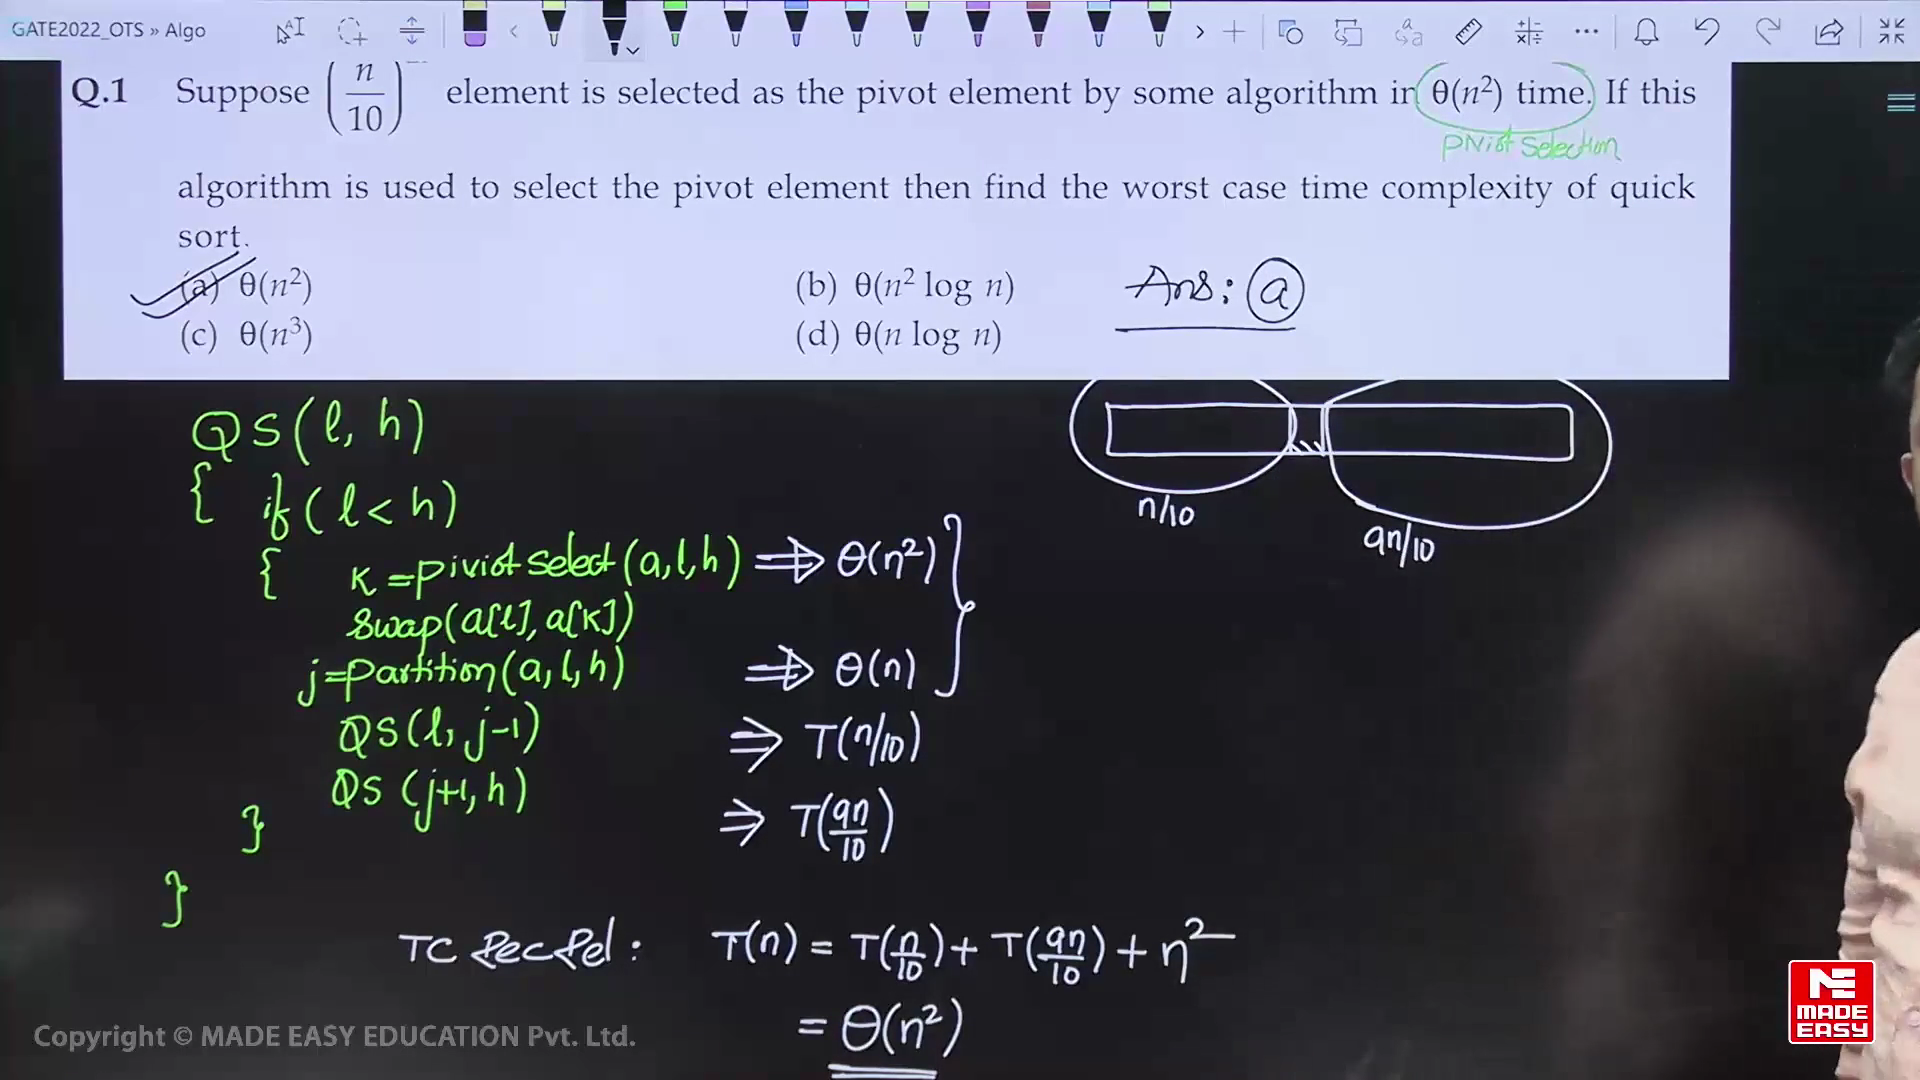 GATE2022_OTS » Algo
Q.1 Suppose (n/10) element is selected as the pivot element by some algorithm in θ(n²) time. If this
pivot selection
algorithm is used to select the pivot element then find the worst case time complexity of quick
sort.
(a) θ(n²) (b) θ(n² log n) Ans: (a)
(c) θ(n³) (d) θ(n log n)
QS(l, h)
{ if(l < h)
n/10
9n/10
{ K = pivot select(a, l, h) ⇒ θ(n²)
swap(a[l], a[k])
j = partition(a, l, h) ⇒ θ(n)
QS(l, j-1) ⇒ T(n/10)
QS(j+1, h) ⇒ T(9n/10)
}
}
TC Rec Rel : T(n) = T(n/10) + T(9n/10) + n²
= θ(n²)
Copyright © MADE EASY EDUCATION Pvt. Ltd.
ME
MADE
EASY